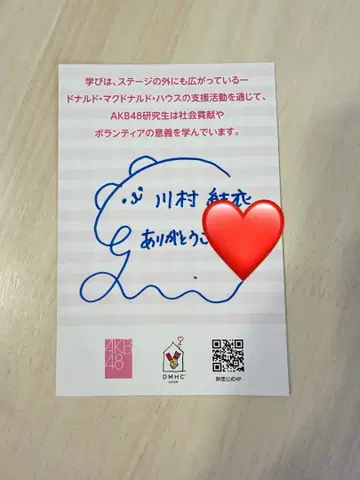 学びは、ステージの外にも広がっているー
ドナルド・マクドナルド・ハウスの支援活動を通じて、
AKB48研究生は社会貢献や
ボランティアの意義を学んでいます。
川村 結衣
ありがとう
AKB
48
DMHC
JAPAN
財団公式HP